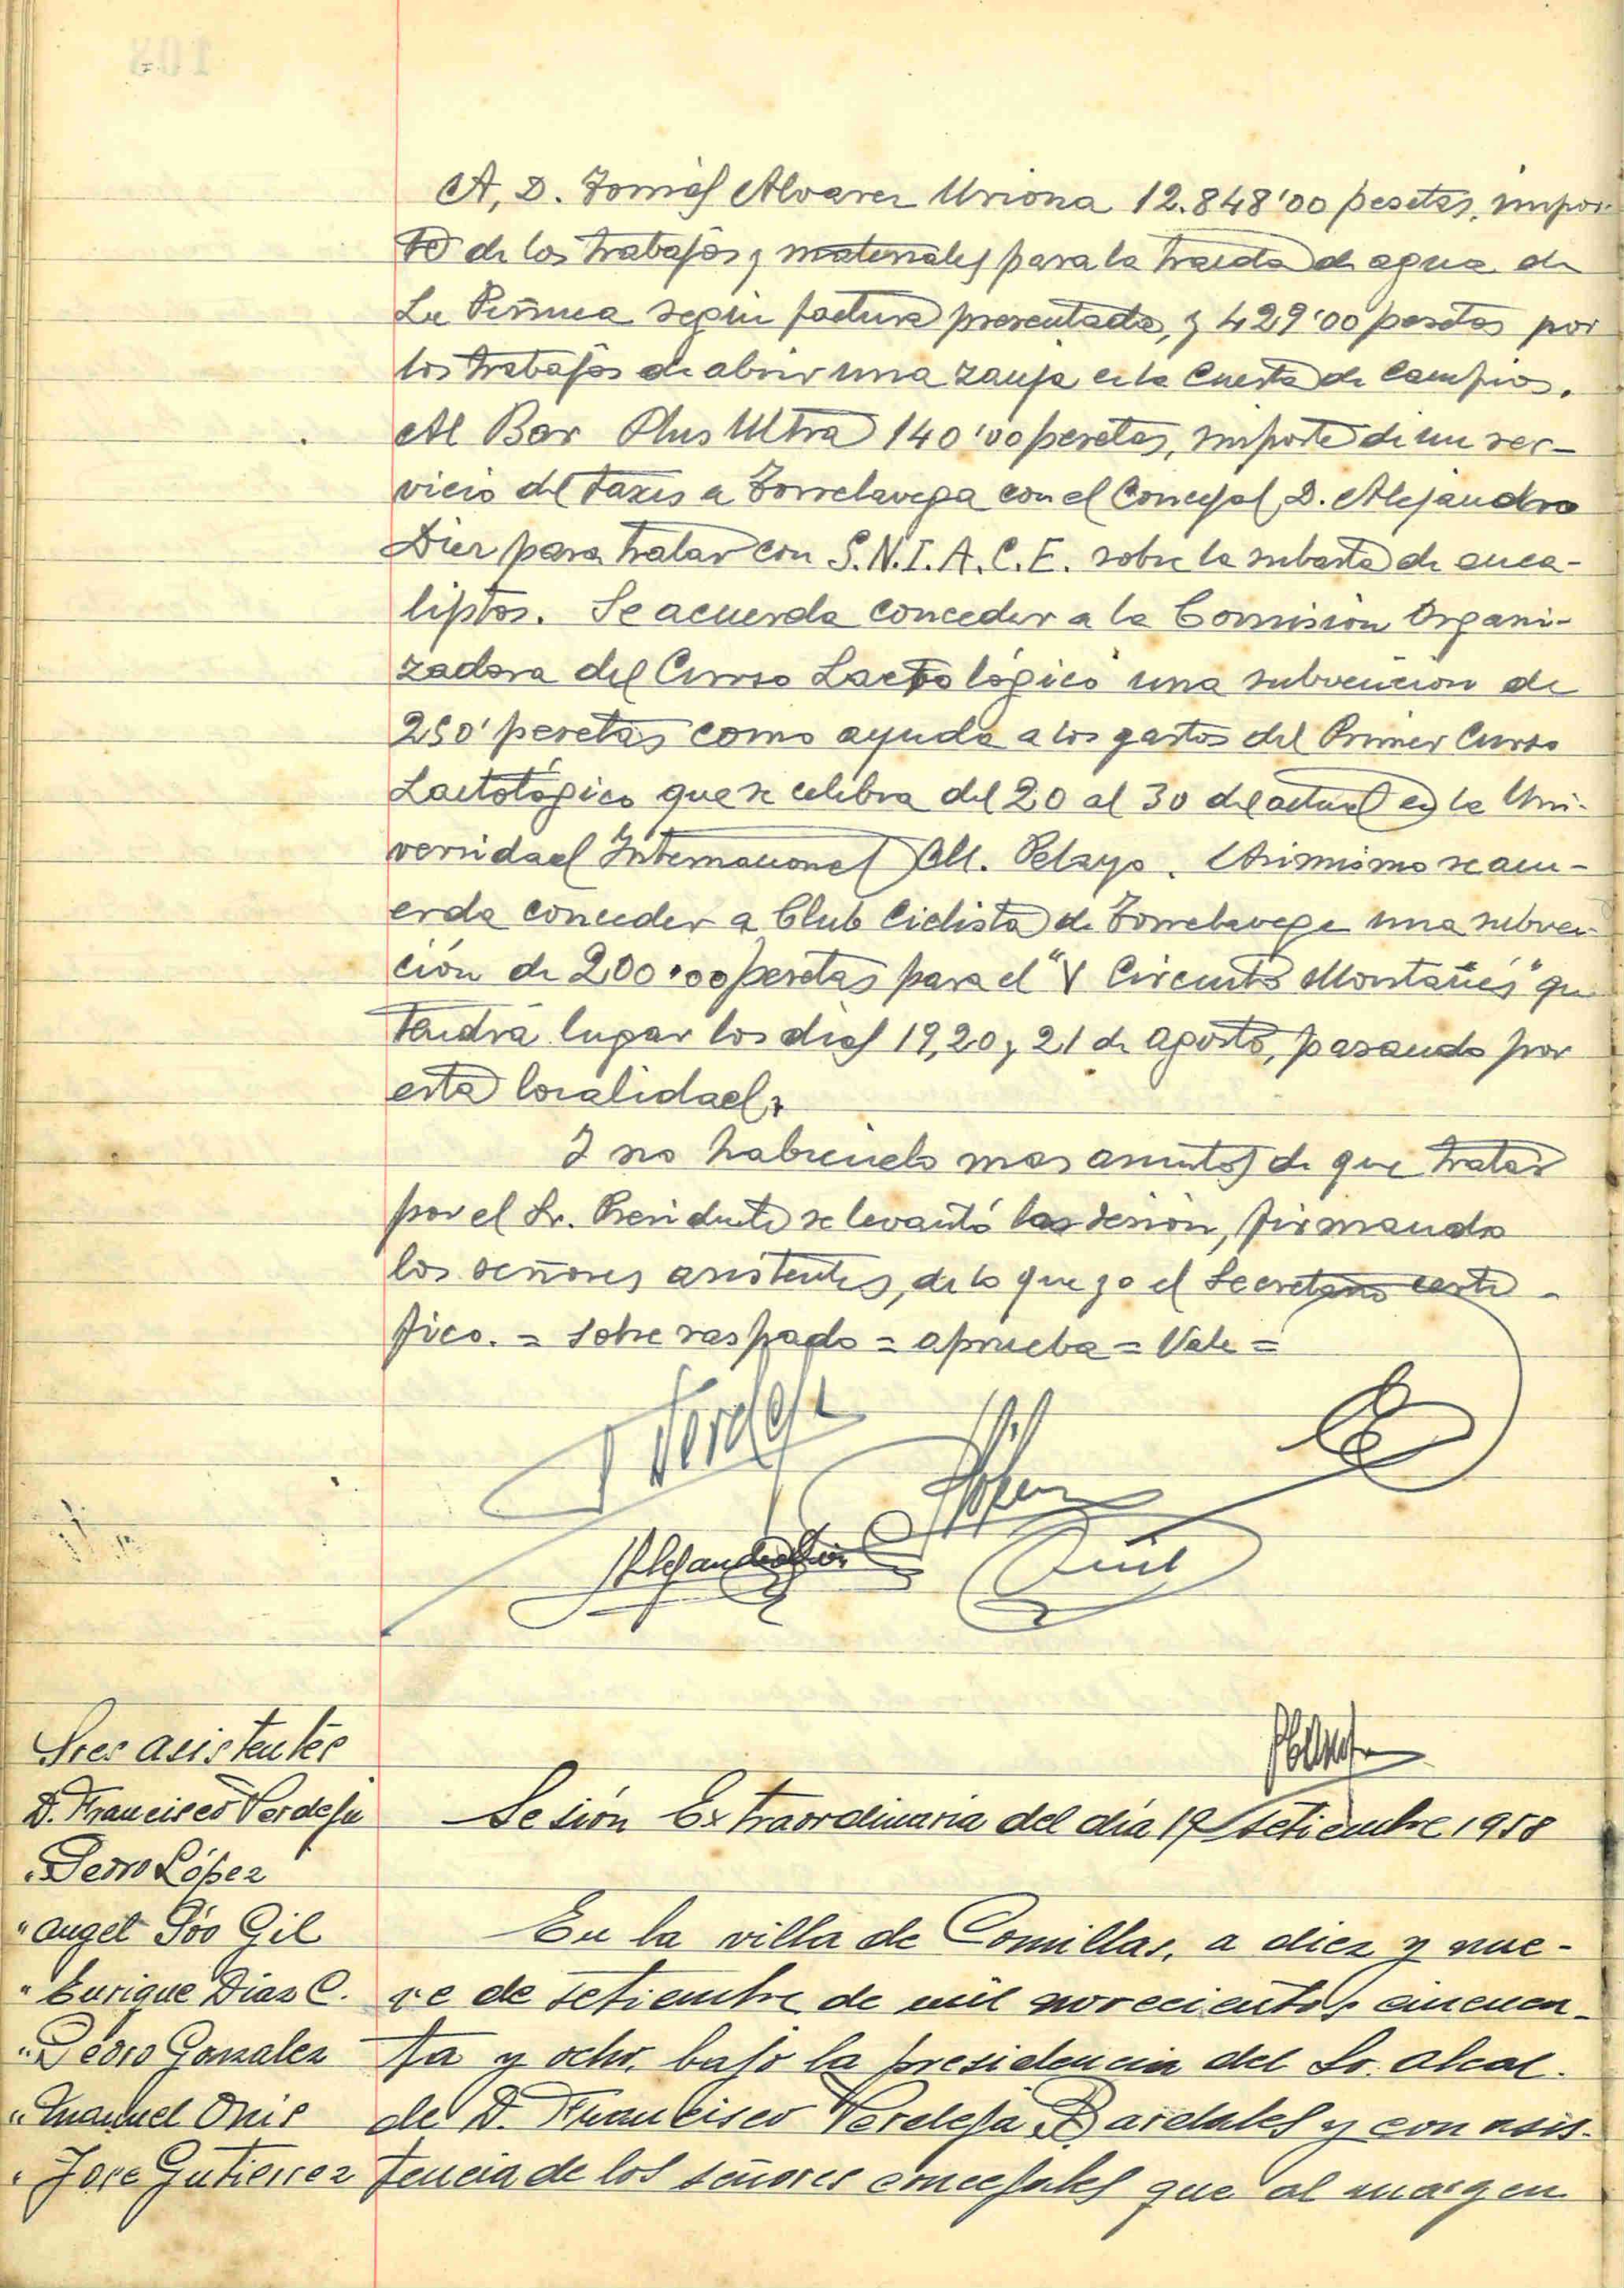 A, D. Tomás Alvarez Uriona 12.848'00 pesetas, impor-
te de los trabajos y materiales para la traida de agua de
La Peñuca según factura presentada, y 429'00 pesetas por
los trabajos de abrir una zanja en la Cuesta de Campios.
Al Bar Plus Ultra 140'00 pesetas, importe de un ser-
vicio del taxis a Torrelavega con el Concejal D. Alejandro
Diez para tratar con S.N.I.A.C.E. sobre la subasta de euca-
liptos. Se acuerda conceder a la Comisión Organi-
zadora del Curso Lactológico una subvencion de
250' pesetas como ayuda a los gastos del Primer Curso
Lactológico que se celebra del 20 al 30 del actual en la Uni-
versidad Internacional M. Pelayo. Asimismo se acu-
erda conceder a Club Ciclista de Torrelavega una subven-
ción de 200'00 pesetas para el "V Circuito Montañés" que
tendrá lugar los dias 19, 20 y 21 de agosto, pasando por
esta localidad.
Y no habiendo mas asuntos de que tratar
por el Sr. Presidente se levantó la sesión, firmando
los señores asistentes, de lo que yo el Secretario certi-
fico. = sobre raspado = aprueba = Vale =
Verdeja
Gil
PLópez
Alejandro Diez
Sres asistentes
D. Francisco Verdeja
" Pedro López
" Angel Póo Gil
" Enrique Diaz C.
" Pedro Gonzalez
" Manuel Onis
" Jose Gutierrez
Sesión Extraordinaria del día 19 setiembre 1958
En la villa de Comillas, a diez y nue-
ve de setiembre de mil novecientos cincuen-
ta y ocho, bajo la presidencia del Sr. Alcal-
de D. Francisco Verdeja Bardales y con asis-
tencia de los señores concejales que al margen